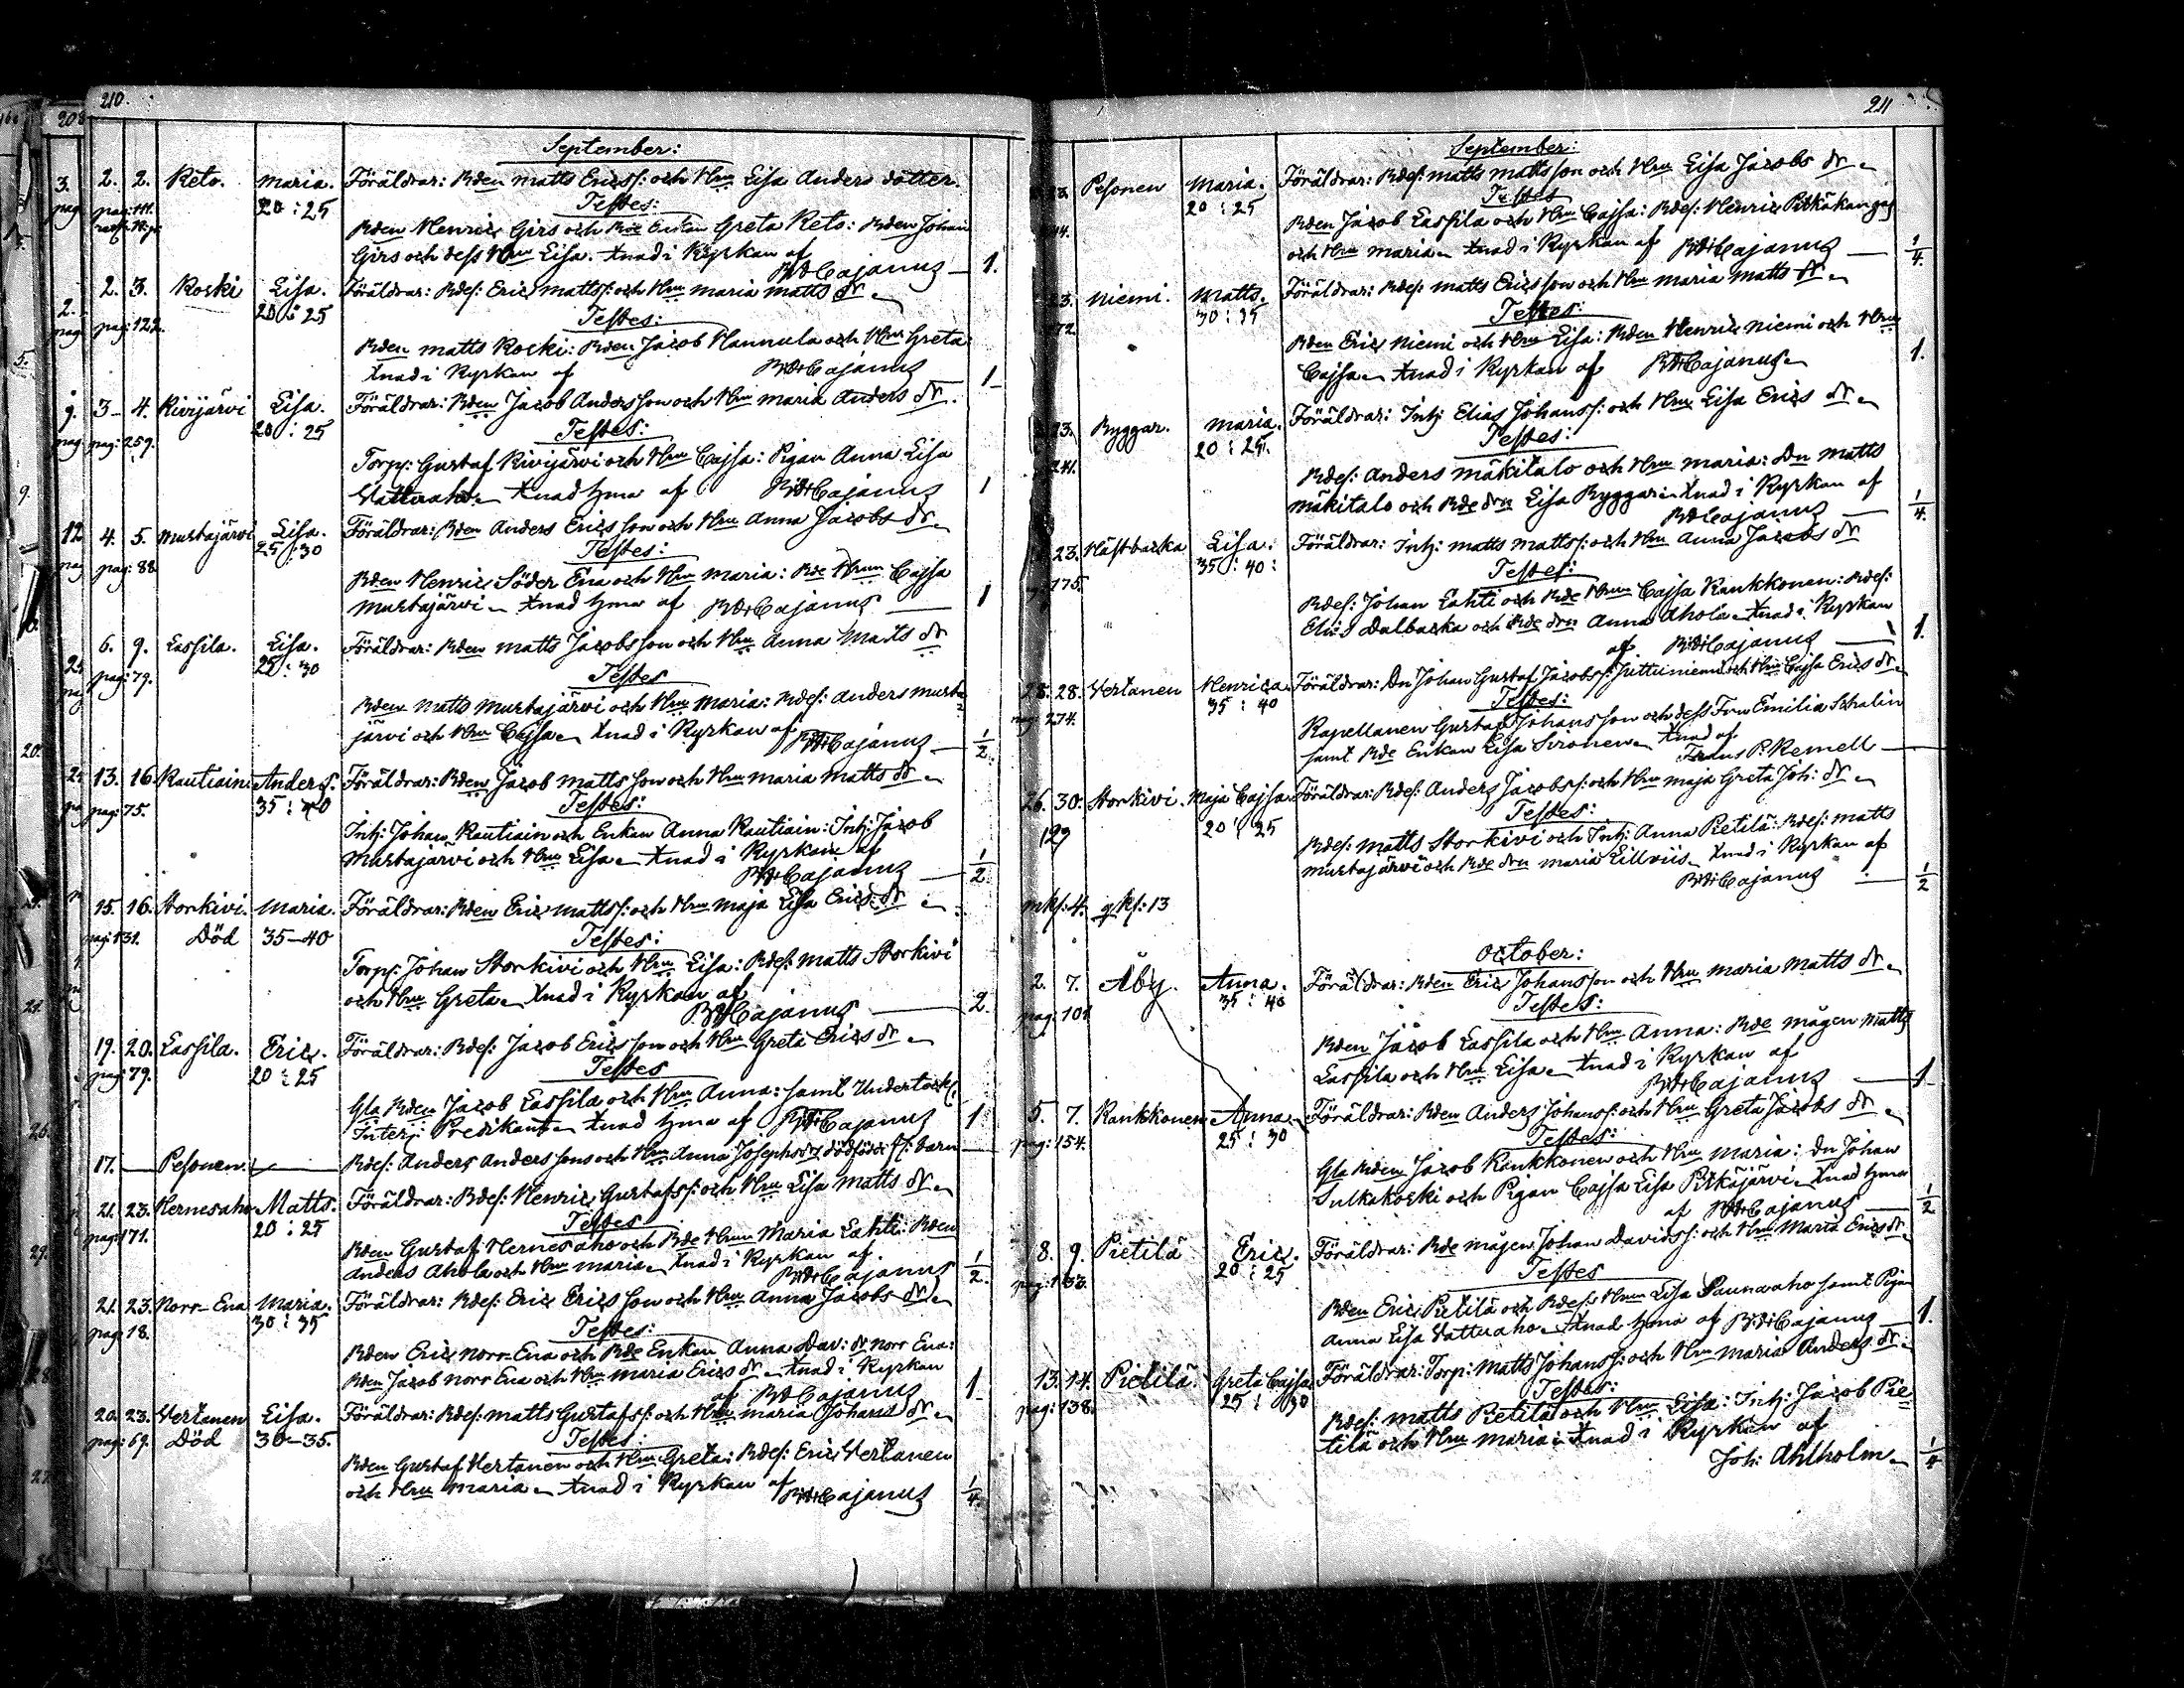 210.
September:
2. 2. Keto. Maria. Föräldrar: Bden Matts Ericss: och Hru Lisa Anders dotter.
pag: 111. 20:25 Testes:
Bden Henric Girs och Bde Enkan Greta Keto: Bden Johan
Girs och dess Hru Lisa. Xnad i Kyrkan af
BHCajanus 1.
2. 3. Koski Lisa. Föräldrar: Bdes: Eric Mattss: och Hru Maria Matts dr
pag: 122. 20:25 Testes:
Bden Matts Koski: Bden Jacob Hannula och Hru Greta
Xnad i Kyrkan af BHCajanus 1
3 4. Kivijärvi Lisa. Föräldrar: Bden Jacob Andersson och Hru Maria Anders dr.
pag: 259. 20:25 Testes:
Torp: Gustaf Kivijärvi och Hru Cajsa: Pigan Anna Lisa
Vattuaho Xnad hma af BHCajanus 1
4. 5. Mustajärvi Lisa. Föräldrar: Bden Anders Ericsson och Hru Anna Jacobs dr
pag: 88 25:30 Testes:
Bden Henric Söder Ena och Hru Maria: Bde Hrun Cajsa
Mustajärvi Xnad hma af BHCajanus 1
6. 9. Lassila. Lisa. Föräldrar: Bden Matts Jacobsson och Hru Anna Matts dr
pag: 79. 25:30 Testes
Bden Matts Mustajärvi och Hru Maria: Bdes: Anders Musta
järvi och Hru Cajsa Xnad i Kyrkan af
BHCajanus 1/2
13. 16. Kautiain Anders. Föräldrar: Bden Jacob Mattsson och Hru Maria Matts dr
pag: 75. 35:40 Testes:
Inh: Johan Kautiain och Enkan Anna Kautiain: Inh: Jacob
Mustajärvi och Hru Lisa Xnad i Kyrkan af
BHCajanus 1/2.
15. 16. Storkivi. Maria. Föräldrar: Bden Eric Mattss: och Hru Maja Lisa Erics dr
pag: 131. Död 35-40 Testes:
Torp: Johan Storkivi och Hru Lisa: Bdes: Matts Storkivi
och Hru Greta Xnad i Kyrkan af
BHCajanus 2.
19. 20. Lassila. Eric. Föräldrar: Bdes: Jacob Ericsson och Hru Greta Erics dr
pag: 79. 20:25 Testes
Gla Bden Jacob Lassila och Hru Anna: samt
Predikant Xnad hma af BHCajanus 1
17. Pesonen. Bdes: Anders Anderssons och Hru Anna Josephs dr dödfödde barn
21. 23. Hernesaho Matts. Föräldrar: Bdes: Henric Gustafss: och Hru Lisa Matts dr
pag: 171. 20:25 Testes
Bden Gustaf Hernesaho och Bde Hrun Maria Lahti: Bden
Anders Ahola och Hru Maria Xnad i Kyrkan af.
BHCajanus 1/2.
21. 23. Norr-Ena Maria. Föräldrar: Bdes: Eric Ericsson och Hru Anna Jacobs dr
pag: 18. 30:35 Testes:
Bden Eric Norr-Ena och Bde Enkan Anna Dav: dr Norr Ena:
Bden Jacob Norr Ena och Hru Maria Erics dr Xnad i Kyrkan
af BHCajanus 1
20. 23. Vertanen Lisa. Föräldrar: Bdes: Matts Gustafss: och Hru Maria Johans dr
pag: 69. Död 30-35. Testes:
Bden Gustaf Vertanen och Hru Greta: Bdes: Eric Vertanen
och Hru Maria Xnad i Kyrkan af BHCajanus 1/4.
211
September:
23. Pesonen Maria. Föräldrar: Bdes: Matts Mattsson och Hru Lisa Jacobs dr
20:25 Testes
Bden Jacob Lassila och Hru Cajsa: Bdes: Henric Pitkäkangas
och Hru Maria Xnad i Kyrkan af BHCajanus 1/4.
23. Niemi. Matts. Föräldrar: Bdes: Matts Ericsson och Hru Maria Matts dr
72. 30:35 Testes:
Bden Eric Niemi och Hru Lisa: Bden Henric Niemi och Hru
Cajsa Xnad i Kyrkan af BHCajanus 1.
23. Ryggar. Maria. Föräldrar: Inh: Elias Johanss: och Hru Lisa Erics dr
241. 20:25. Testes:
Bdes: Anders Mäkitalo och Hru Maria: Dn Matts
Mäkitalo och Bde drn Lisa Ryggar Xnad i Kyrkan af
BHCajanus 1/4.
23. Hästbacka Lisa. Föräldrar: Inh: Matts Mattss: och Hru Anna Jacobs dr
175. 35:40: Testes:
Bdes: Johan Lahti och Bde Hrun Cajsa Kankkonen: Bdes:
Elias Dalbacka och Bde drn Anna Ahola Xnad i Kyrkan
af BHCajanus 1.
28. 28. Vertanen Henrica. Föräldrar: Dn Johan Gustaf Jacobss: Juttuniemi och Hru Cajsa Erics dr
pag: 274. 35:40 Testes:
Kapellanen Gustaf Johansson och dess Fru Emilia Schalin
samt Bde Enkan Lisa Sironen Xnad af
Frans P. Kemell
26. 30. Storkivi. Maja Cajsa Föräldrar: Bdes: Anders Jacobss: och Hru Maja Greta Joh: dr
129 20:25 Testes:
Bdes: Matts Storkivi och Inh: Anna Pietilä: Bdes: Matts
Mustajärvi och Bde drn Maria Lillviis Xnad i Kyrkan af
BHCajanus 1/2
mks: 4. qks: 13
October:
2. 7. Åby. Anna. Föräldrar: Bden Eric Johansson och Hru Maria Matts dr
pag: 101 35:40 Testes:
Bden Jacob Lassila och Hru Anna: Bde mågen Matts
Lassila och Hru Lisa Xnad i Kyrkan af
BHCajanus 1
5. 7. Kankkonen Anna Föräldrar: Bden Anders Johanss: och Hru Greta Jacobs dr
pag: 154. 25:30 Testes:
Gla Bden Jacob Kankkonen och Hru Maria: Dn Johan
Sulkakoski och Pigan Cajsa Lisa Pitkäjärvi Xnad hma
af BHCajanus 1/2
8. 9. Pietilä Eric. Föräldrar: Bde mågen Johan Davidss: och Hru Maria Erics dr
pag: 133. 20:25 Testes
Bden Eric Pietilä och Bdes: Hrun Lisa Saunaaho samt Pigan
Anna Lisa Vattuaho Xnad hma af BHCajanus 1.
13. 14. Pietilä. Greta Cajsa Föräldrar: Torp: Matts Johanss: och Hru Maria Anders dr
pag: 138. 25:30 Testes:
Bdes: Matts Pietilä och Hru Lisa: Inh: Jacob Pie
tilä och Hru Maria Xnad i Kyrkan af
Joh: Ahlholm 1/4